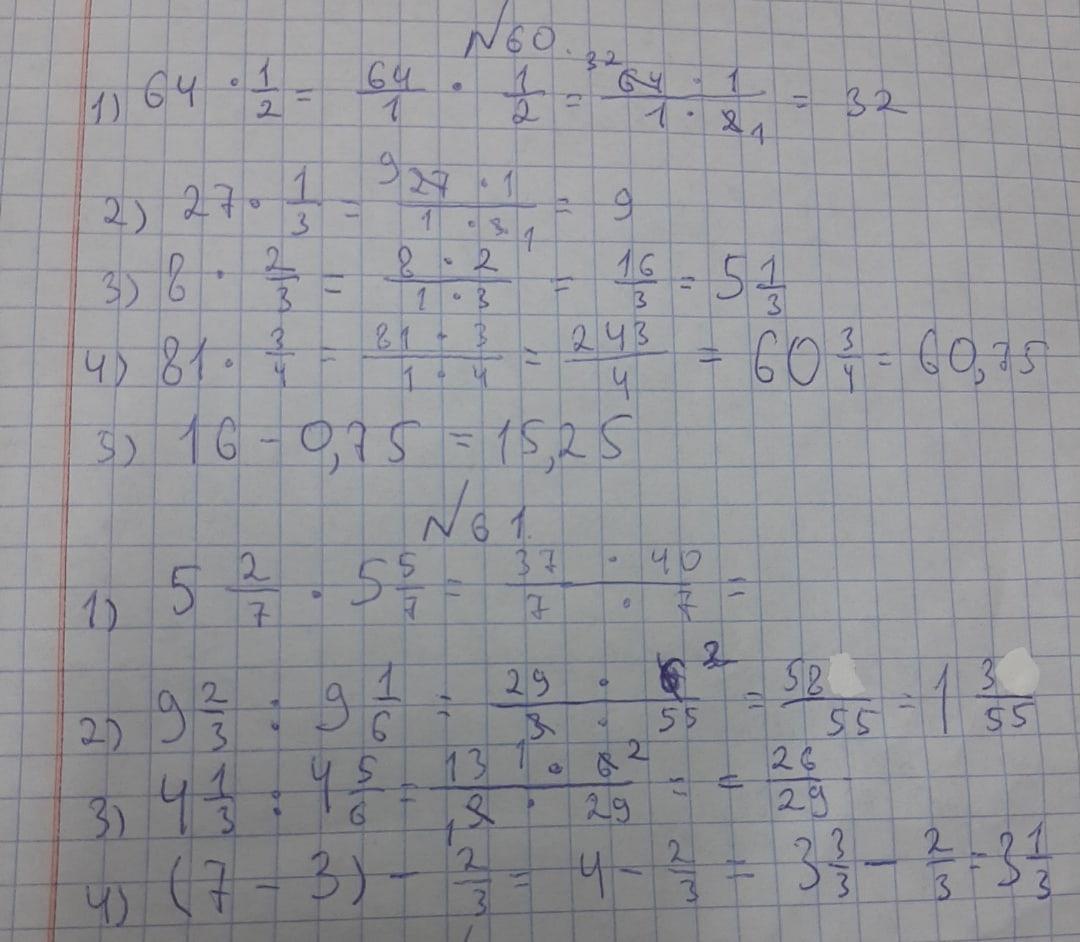 №60.
1) 64 · 1/2 = 64/1 · 1/2 = 32 64 · 1 / 1 · 2 1 = 32
2) 27 · 1/3 = 9 27 · 1 / 1 · 3 1 = 9
3) 8 · 2/3 = 8 · 2 / 1 · 3 = 16/3 = 5 1/3
4) 81 · 3/4 = 81 · 3 / 1 · 4 = 243/4 = 60 3/4 = 60,75
5) 16 - 0,75 = 15,25
№61.
1) 5 2/7 · 5 5/7 = 37 · 40 / 7 · 7 =
2) 9 2/3 : 9 1/6 = 29 · 6 2 / 3 · 55 = 58/55 = 1 3/55
3) 4 1/3 : 4 5/6 = 13 1 · 6 2 / 1 3 · 29 = = 26/29
4) (7 - 3) - 2/3 = 4 - 2/3 = 3 3/3 - 2/3 = 3 1/3